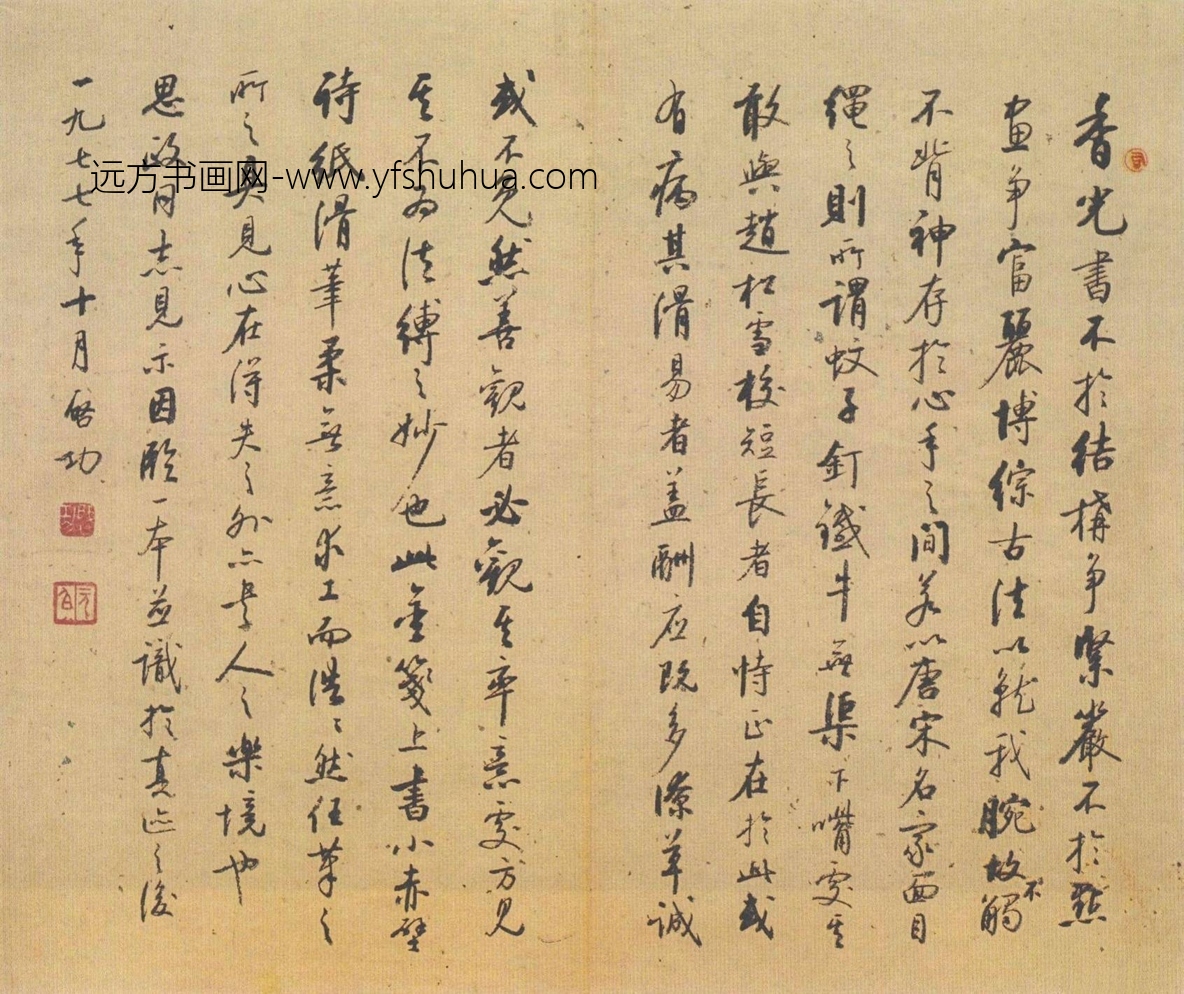 香光書不於結構争緊嚴不於點
畫争富麗博綜古法以就我腕故不觸
不背神存於心手之間若以唐宋名家面目
繩之則所謂蚊子釘鐵牛無渠下嘴處其
敢與趙松雪校短長者自恃正在於此或
有病其滑易者盖酬应既多潦草誠
或不免然善觀者必觀其率意處方見
其不为法縛之妙也此金箋上書小赤壁
詩紙滑筆柔無意求工而浩浩然任筆之
所之與見心在得失之外亦是人之樂境也
思政同志見示因臨一本並識於真迹之後
一九七七年十月啓功
远方书画网-www.yfshuhua.com